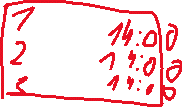 1 14:00
2 14:00
3 14:00